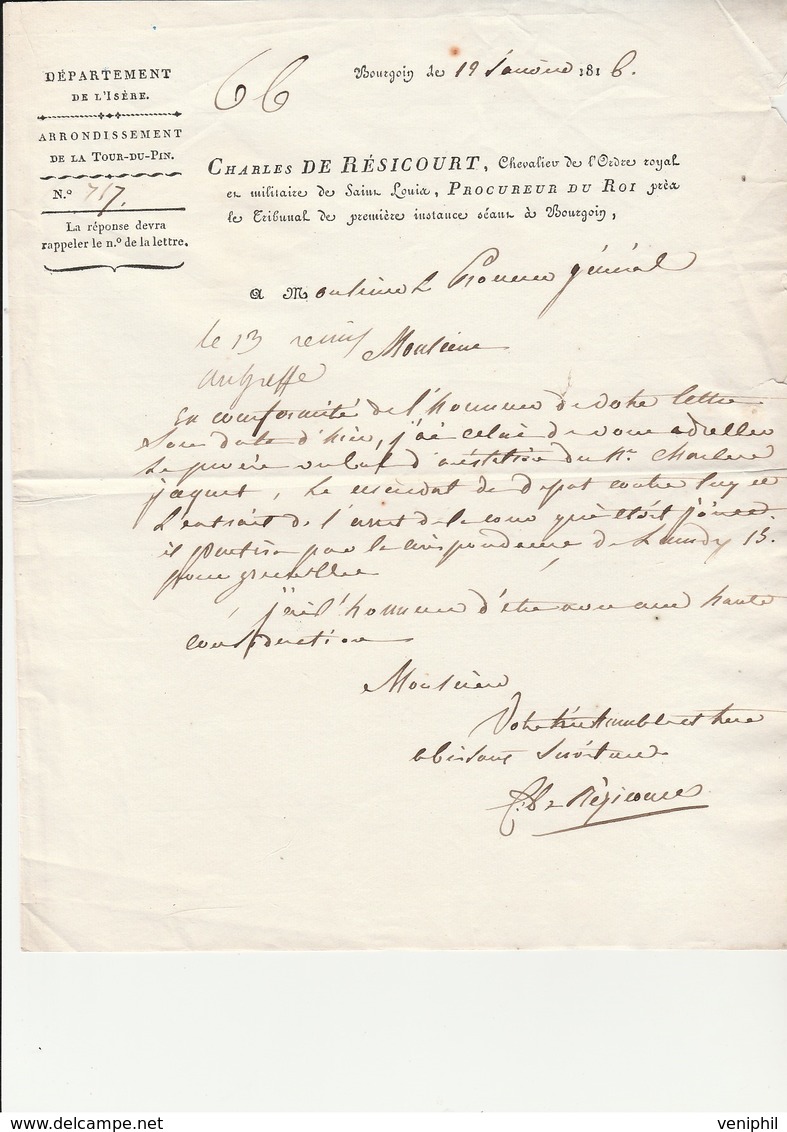 DÉPARTEMENT
DE L'ISÈRE.
ARRONDISSEMENT
DE LA TOUR-DU-PIN.
N.º 717.
La réponse devra
rappeler le n.º de la lettre.
66
Bourgoin le 12 Janvier 1816.
CHARLES DE RÉSICOURT, Chevalier de l'Ordre royal
et militaire de Saint Louis, PROCUREUR DU ROI près
le Tribunal de première instance séant à Bourgoin,
A Monsieur Le Procureur général
le 13 remis
au greffe
Monsieur
En conformité de l'honneur de votre lettre
Sous date d'hier, j'ai celui de vous adresser
Le procès verbal d'arestation du Né.
jaquet, Le mandat de depot contre luy et
L'extrait de l'arret de la cour qui étoit joint
il partira par la correspondance de Lundy 15.
pour grenoble
j'ai l'honneur d'etre avec une haute
considération
Monsieur
Votre très humble et très
obeissant Serviteur
Ch. De Résicourt
veniphil